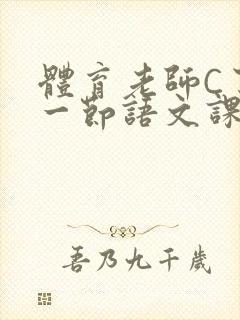 體育老師C
一節語文課
吾乃九千歲